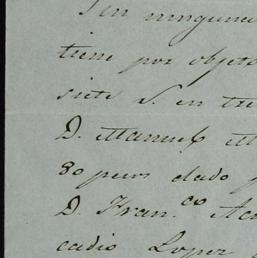 Sin ninguna
tiene por objeto
siete S. en tre
D. Manuel M
80 pesos dado p
D. Fran.co Ac
cadio Lopez